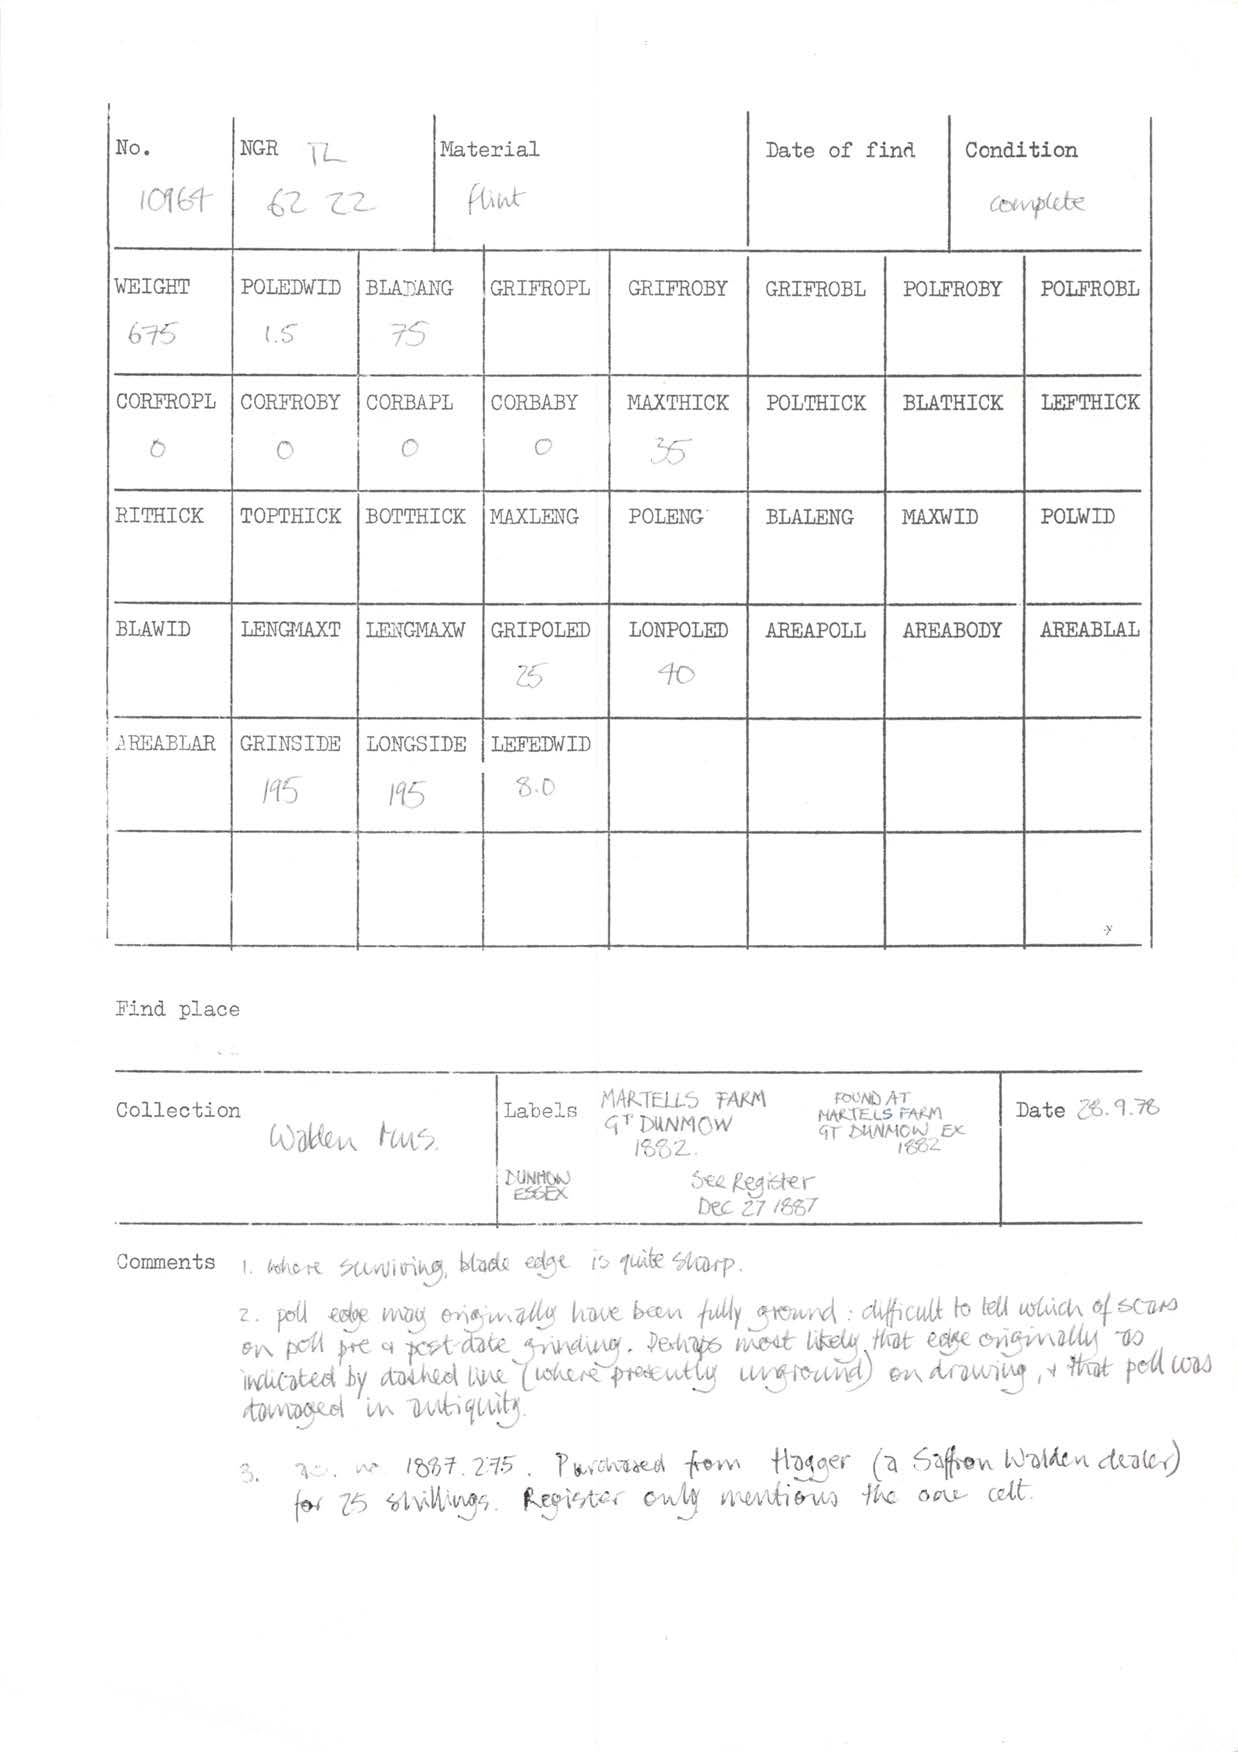 No. NGR TL Material Date of find Condition
10964 62 22 flint complete
WEIGHT POLEDWID BLADANG GRIFROPL GRIFROBY GRIFROBL POLFROBY POLFROBL
675 1.5 75
CORFROPL CORFROBY CORBAPL CORBABY MAXTHICK POLTHICK BLATHICK LEFTHICK
0 0 0 0 35
RITHICK TOPTHICK BOTTHICK MAXLENG POLENG BLALENG MAXWID POLWID
BLAWID LENGMAXT LENGMAXW GRIPOLED LONPOLED AREAPOLL AREABODY AREABLAL
25 40
AREABLAR GRINSIDE LONGSIDE LEFEDWID
195 195 8.0
Find place
Collection
Walden Mus.
Labels
MARTELLS FARM
GT DUNMOW
1882.
FOUND AT
MARTELS FARM
GT DUNMOW EX
1882
DUNMOW
ESSEX
See Register
Dec 27 1887
Date 28.9.78
Comments 1. where surviving, blade edge is quite sharp.
2. poll edge may originally have been fully ground : difficult to tell which of scars
on poll pre & post-date grinding. Perhaps most likely that edge originally as
indicated by dashed line (where presently unground) on drawing, & that poll was
damaged in antiquity.
3. ac. no 1887.275. Purchased from Hagger (a Saffron Walden dealer)
for 25 shillings. Register only mentions the one celt.